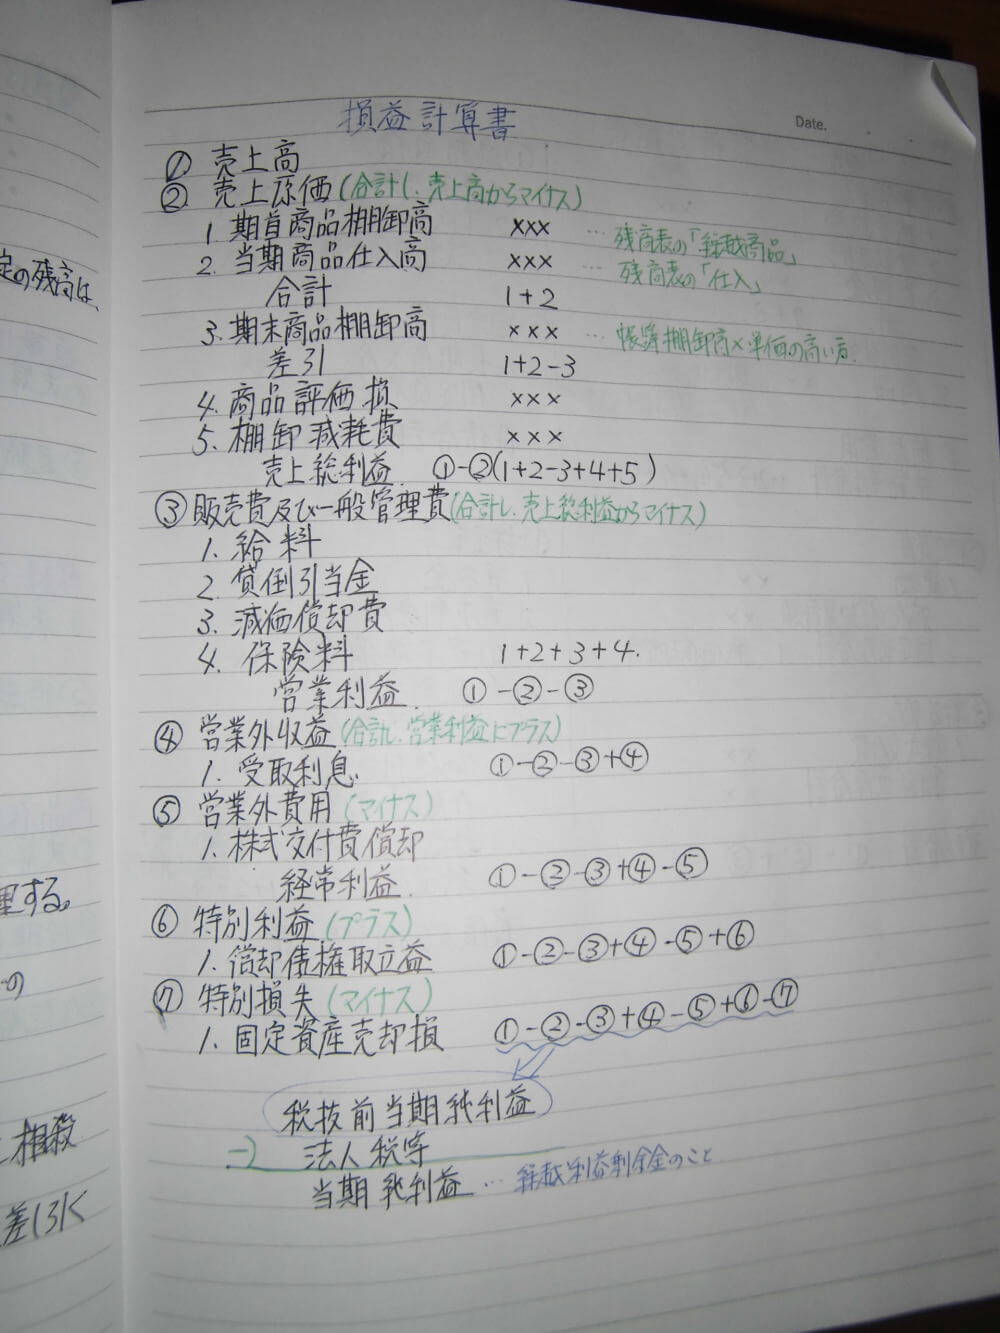 損益計算書
Date.
① 売上高
② 売上原価(合計し、売上高からマイナス)
1. 期首商品棚卸高 ××× … 残高表の「繰越商品」
2. 当期商品仕入高 ××× … 残高表の「仕入」
合計 1+2
3. 期末商品棚卸高 ××× … 帳簿棚卸高×単価の高い方.
差引 1+2-3
4. 商品評価損 ×××
5. 棚卸減耗費 ×××
売上総利益 ①-②(1+2-3+4+5)
③ 販売費及び一般管理費(合計し、売上総利益からマイナス)
1. 給料
2. 貸倒引当金
3. 減価償却費
4. 保険料 1+2+3+4.
営業利益. ①-②-③
④ 営業外収益(合計し、営業利益にプラス)
1. 受取利息 ①-②-③+④
⑤ 営業外費用(マイナス)
1. 株式交付費償却
経常利益. ①-②-③+④-⑤
⑥ 特別利益(プラス)
1. 償却債権取立益 ①-②-③+④-⑤+⑥
⑦ 特別損失(マイナス)
1. 固定資産売却損 ①-②-③+④-⑤+⑥-⑦
税抜前当期純利益
-) 法人税等
当期純利益 … 繰越利益剰余金のこと
定の残高は、
理する。
の
相殺
差し引く